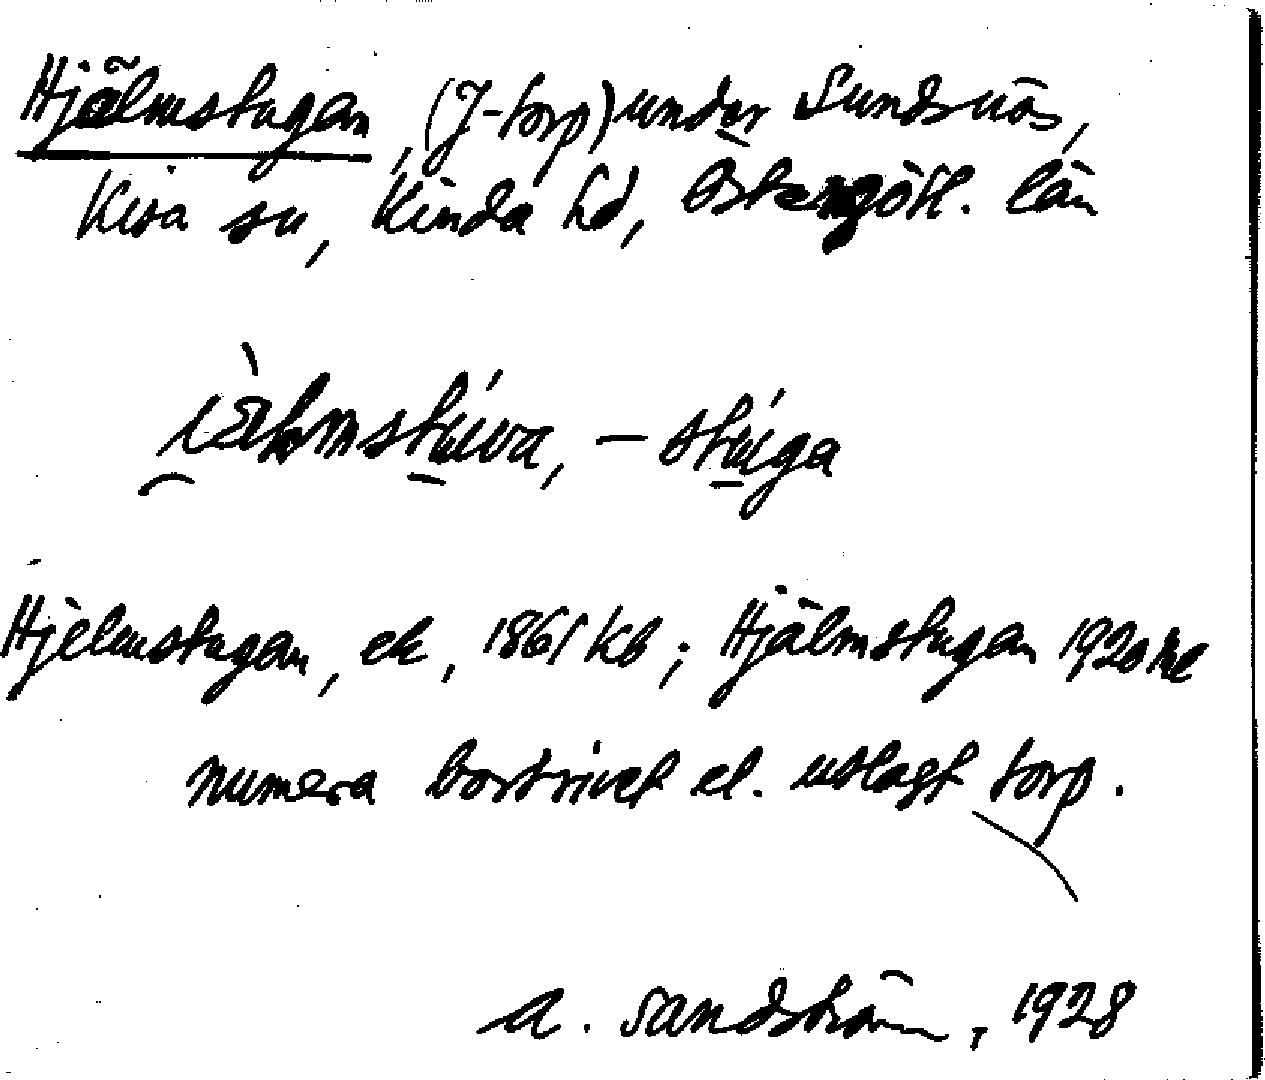 Hjälmstugan, (J-torp) under Sundsnäs,
Kisa sn, Kinda hd, Östergötl. län
Hjelmstugan, ek, 1861 Kb; Hjälmstugan 1920
numera bortrivet el. utlagt torp.
A. Sandström, 1928